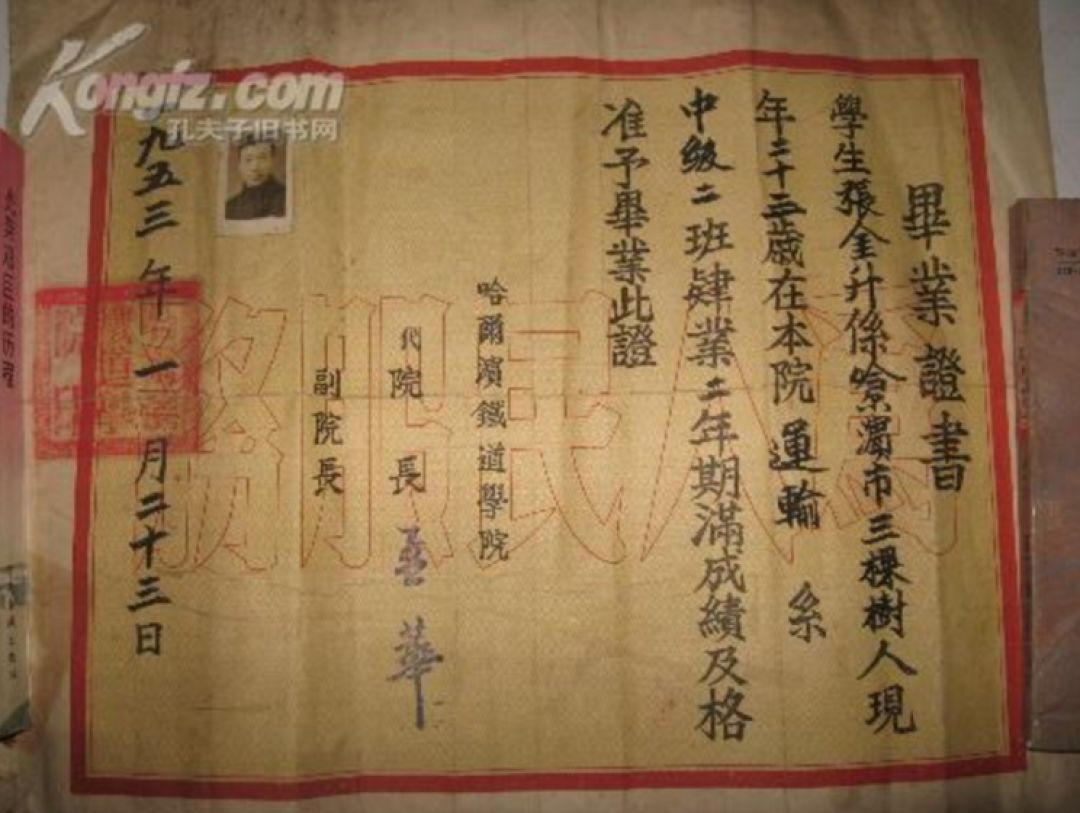 畢業證書
學生張金升係哈濱市三棵樹人現
年二十三歲在本院運輸系
中級二班肄業二年期滿成績及格
准予畢業此證
哈爾濱鐵道學院
代院長
副院長
一九五三年一月二十三日
為人民服務
Kongfz.com
孔夫子旧书网